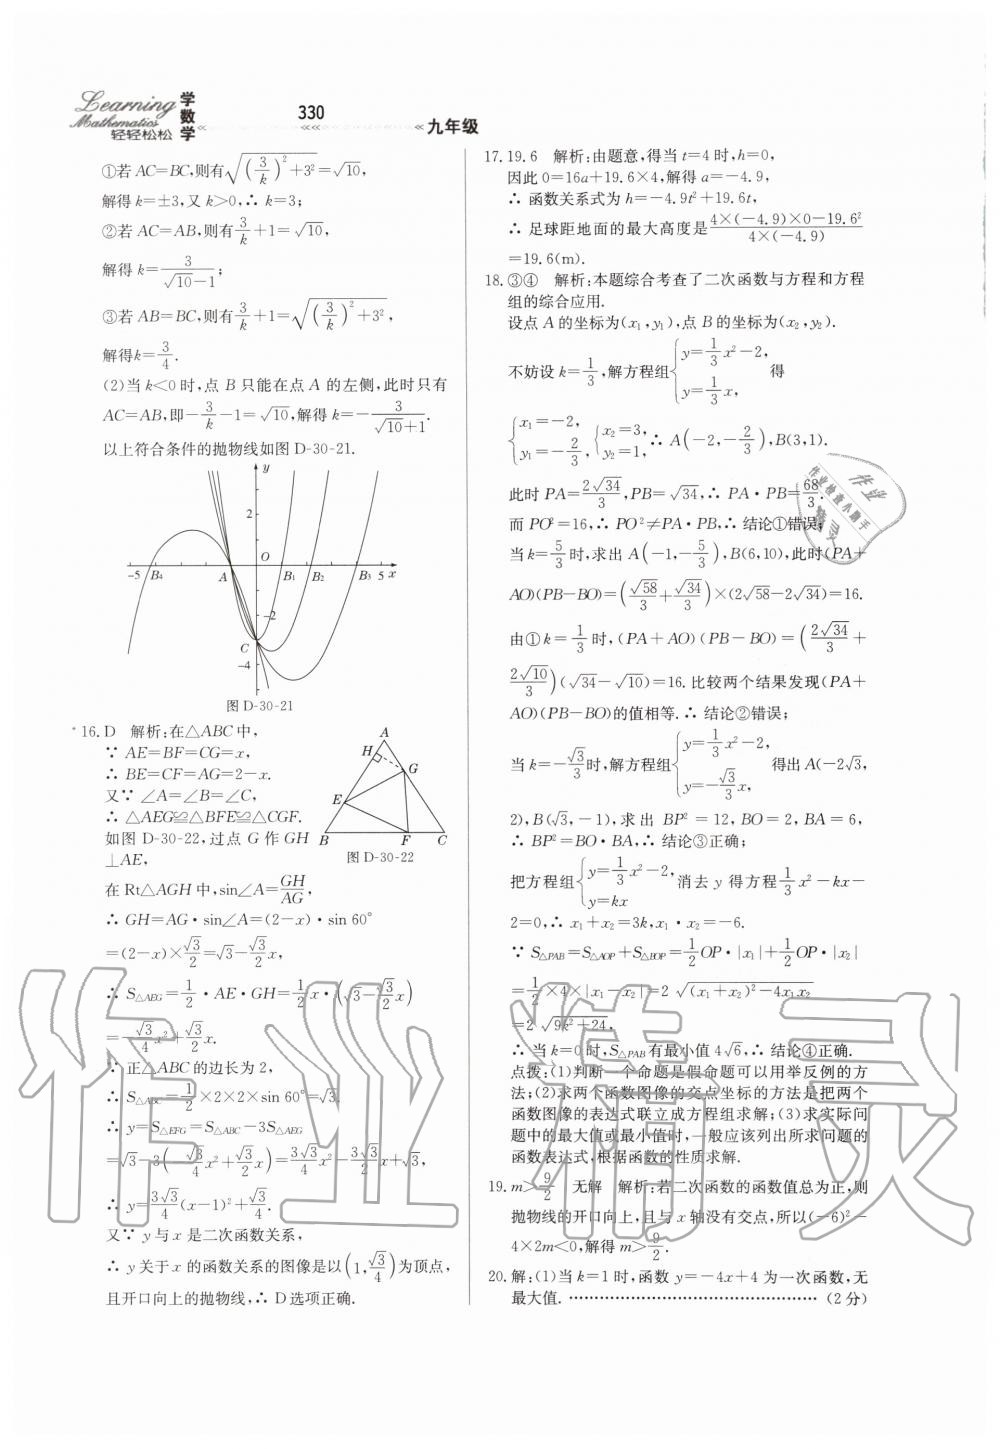 Learning
Mathematics
轻轻松松
学数学
330
九年级
①若 AC=BC,则有√((3/k)²+3²)=√10,
解得 k=±3,又 k>0,∴ k=3;
②若 AC=AB,则有3/k+1=√10,
解得 k=3/(√10-1);
③若 AB=BC,则有3/k+1=√((3/k)²+3²),
解得k=3/4.
(2)当 k<0 时,点 B 只能在点 A 的左侧,此时只有
AC=AB,即-3/k-1=√10,解得 k=-3/(√10+1).
以上符合条件的抛物线如图 D-30-21.
y
2
O
-5 B₄ A B₁ B₂ B₃ 5 x
-2
C
-4
图 D-30-21
*16. D 解析:在△ABC 中,
∵ AE=BF=CG=x,
∴ BE=CF=AG=2-x.
又∵ ∠A=∠B=∠C,
∴ △AEG≌△BFE≌△CGF.
如图 D-30-22,过点 G 作 GH
⊥AE,
A
H
G
E
B F C
图 D-30-22
在 Rt△AGH 中,sin∠A=GH/AG,
∴ GH=AG·sin∠A=(2-x)·sin 60°
=(2-x)×√3/2=√3-√3/2x,
∴ S△AEG=1/2·AE·GH=1/2x·(√3-√3/2x)
=-√3/4x²+√3/2x.
∵ 正△ABC 的边长为 2,
∴ S△ABC=1/2×2×2×sin 60°=√3.
∴ y=S△EFG=S△ABC-3S△AEG
=√3-3(-√3/4x²+√3/2x)=3√3/4x²-3√3/2x+√3,
∴ y=3√3/4(x-1)²+√3/4.
又∵ y与 x 是二次函数关系,
∴ y关于 x 的函数关系的图像是以(1,√3/4)为顶点,
且开口向上的抛物线,∴ D选项正确.
17. 19.6 解析:由题意,得当 t=4 时,h=0,
因此 0=16a+19.6×4,解得 a=-4.9,
∴ 函数关系式为 h=-4.9t²+19.6t,
∴ 足球距地面的最大高度是(4×(-4.9)×0-19.6²)/(4×(-4.9))
=19.6(m).
18. ③④ 解析:本题综合考查了二次函数与方程和方程
组的综合应用.
设点 A 的坐标为(x₁,y₁),点 B 的坐标为(x₂,y₂).
不妨设 k=1/3,解方程组{y=1/3x²-2, y=1/3x, 得
{x₁=-2, y₁=-2/3, {x₂=3, y₂=1, ∴ A(-2,-2/3),B(3,1).
此时 PA=2√34/3,PB=√34,∴ PA·PB=68/3.
而 PO²=16,∴ PO²≠PA·PB,∴ 结论①错误;
当 k=5/3时,求出 A(-1,-5/3),B(6,10),此时(PA+
AO)(PB-BO)=(√58/3+√34/3)×(2√58-2√34)=16.
由①k=1/3时,(PA+AO)(PB-BO)=(2√34/3+
2√10/3)(√34-√10)=16.比较两个结果发现(PA+
AO)(PB-BO)的值相等.∴ 结论②错误;
当 k=-√3/3时,解方程组{y=1/3x²-2, y=-√3/3x, 得出 A(-2√3,
2),B(√3,-1),求出 BP²=12,BO=2,BA=6,
∴ BP²=BO·BA,∴ 结论③正确;
把方程组{y=1/3x²-2, y=kx 消去 y 得方程1/3x²-kx-
2=0,∴ x₁+x₂=3k,x₁·x₂=-6.
∵ S△PAB=S△AOP+S△BOP=1/2OP·|x₁|+1/2OP·|x₂|
=1/2×4×|x₁-x₂|=2√((x₁+x₂)²-4x₁x₂)
=2√(9k²+24),
∴ 当 k=0 时,S△PAB有最小值 4√6,∴ 结论④正确.
点拨:(1)判断一个命题是假命题可以用举反例的方
法;(2)求两个函数图像的交点坐标的方法是把两个
函数图像的表达式联立成方程组求解;(3)求实际问
题中的最大值或最小值时,一般应该列出所求问题的
函数表达式,根据函数的性质求解.
19. m>9/2 无解 解析:若二次函数的函数值总为正,则
抛物线的开口向上,且与 x 轴没有交点,所以(-6)²-
4×2m<0,解得 m>9/2.
20. 解:(1)当 k=1 时,函数 y=-4x+4 为一次函数,无
最大值. ……………………………………… (2 分)
作业
作业检查小助手
精灵
作业精灵